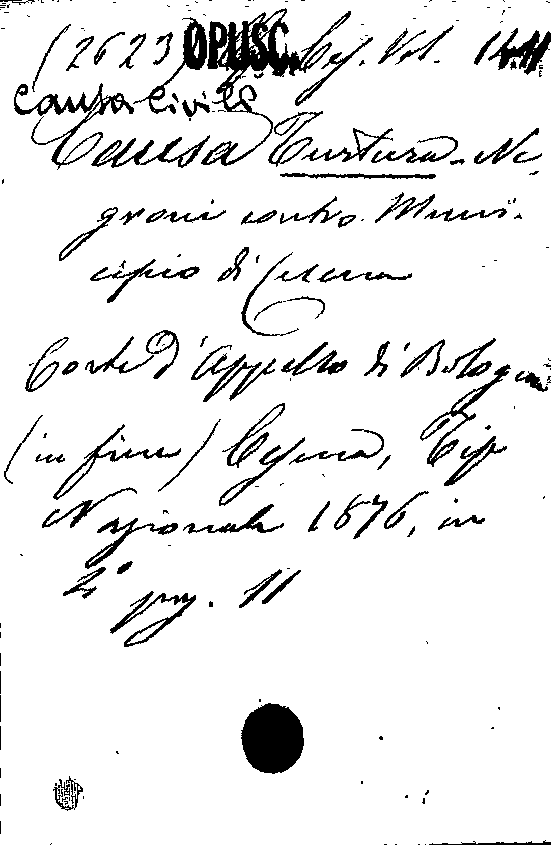 (2623) OPUSC. Ces. Vol. 141
Causa Civile
Causa Turtura - Ne-
groni contro Muni-
cipio di Cesena
Corte d'Appello di Bologna
(in fine) Cesena, Tip
Nazionale 1876, in
2° pag. 11